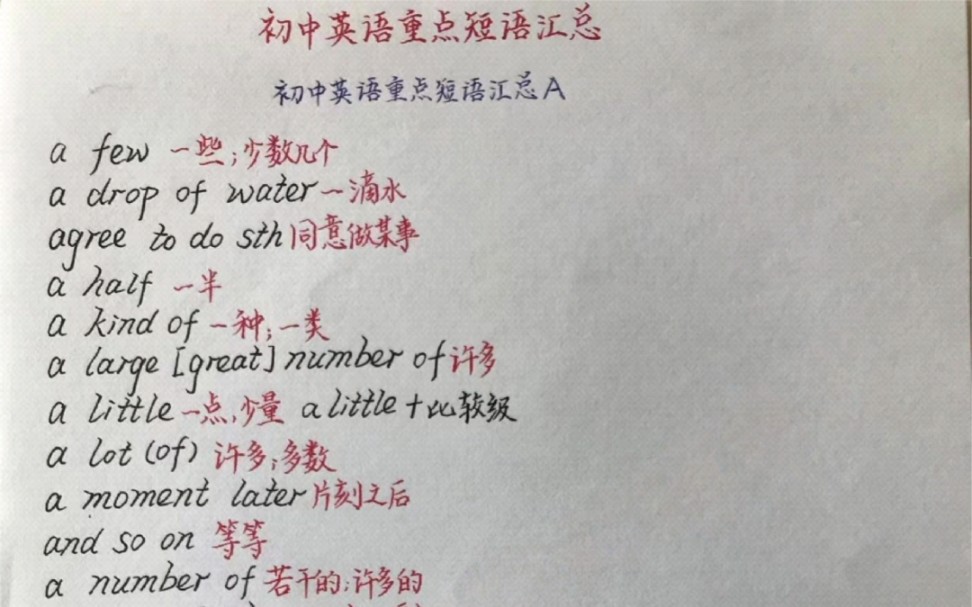 初中英语重点短语汇总
初中英语重点短语汇总A
a few 一些;少数几个
a drop of water 一滴水
agree to do sth 同意做某事
a half 一半
a kind of 一种;一类
a large [great] number of 许多
a little 一点,少量 a little + 比较级
a lot (of) 许多;多数
a moment later 片刻之后
and so on 等等
a number of 若干的;许多的